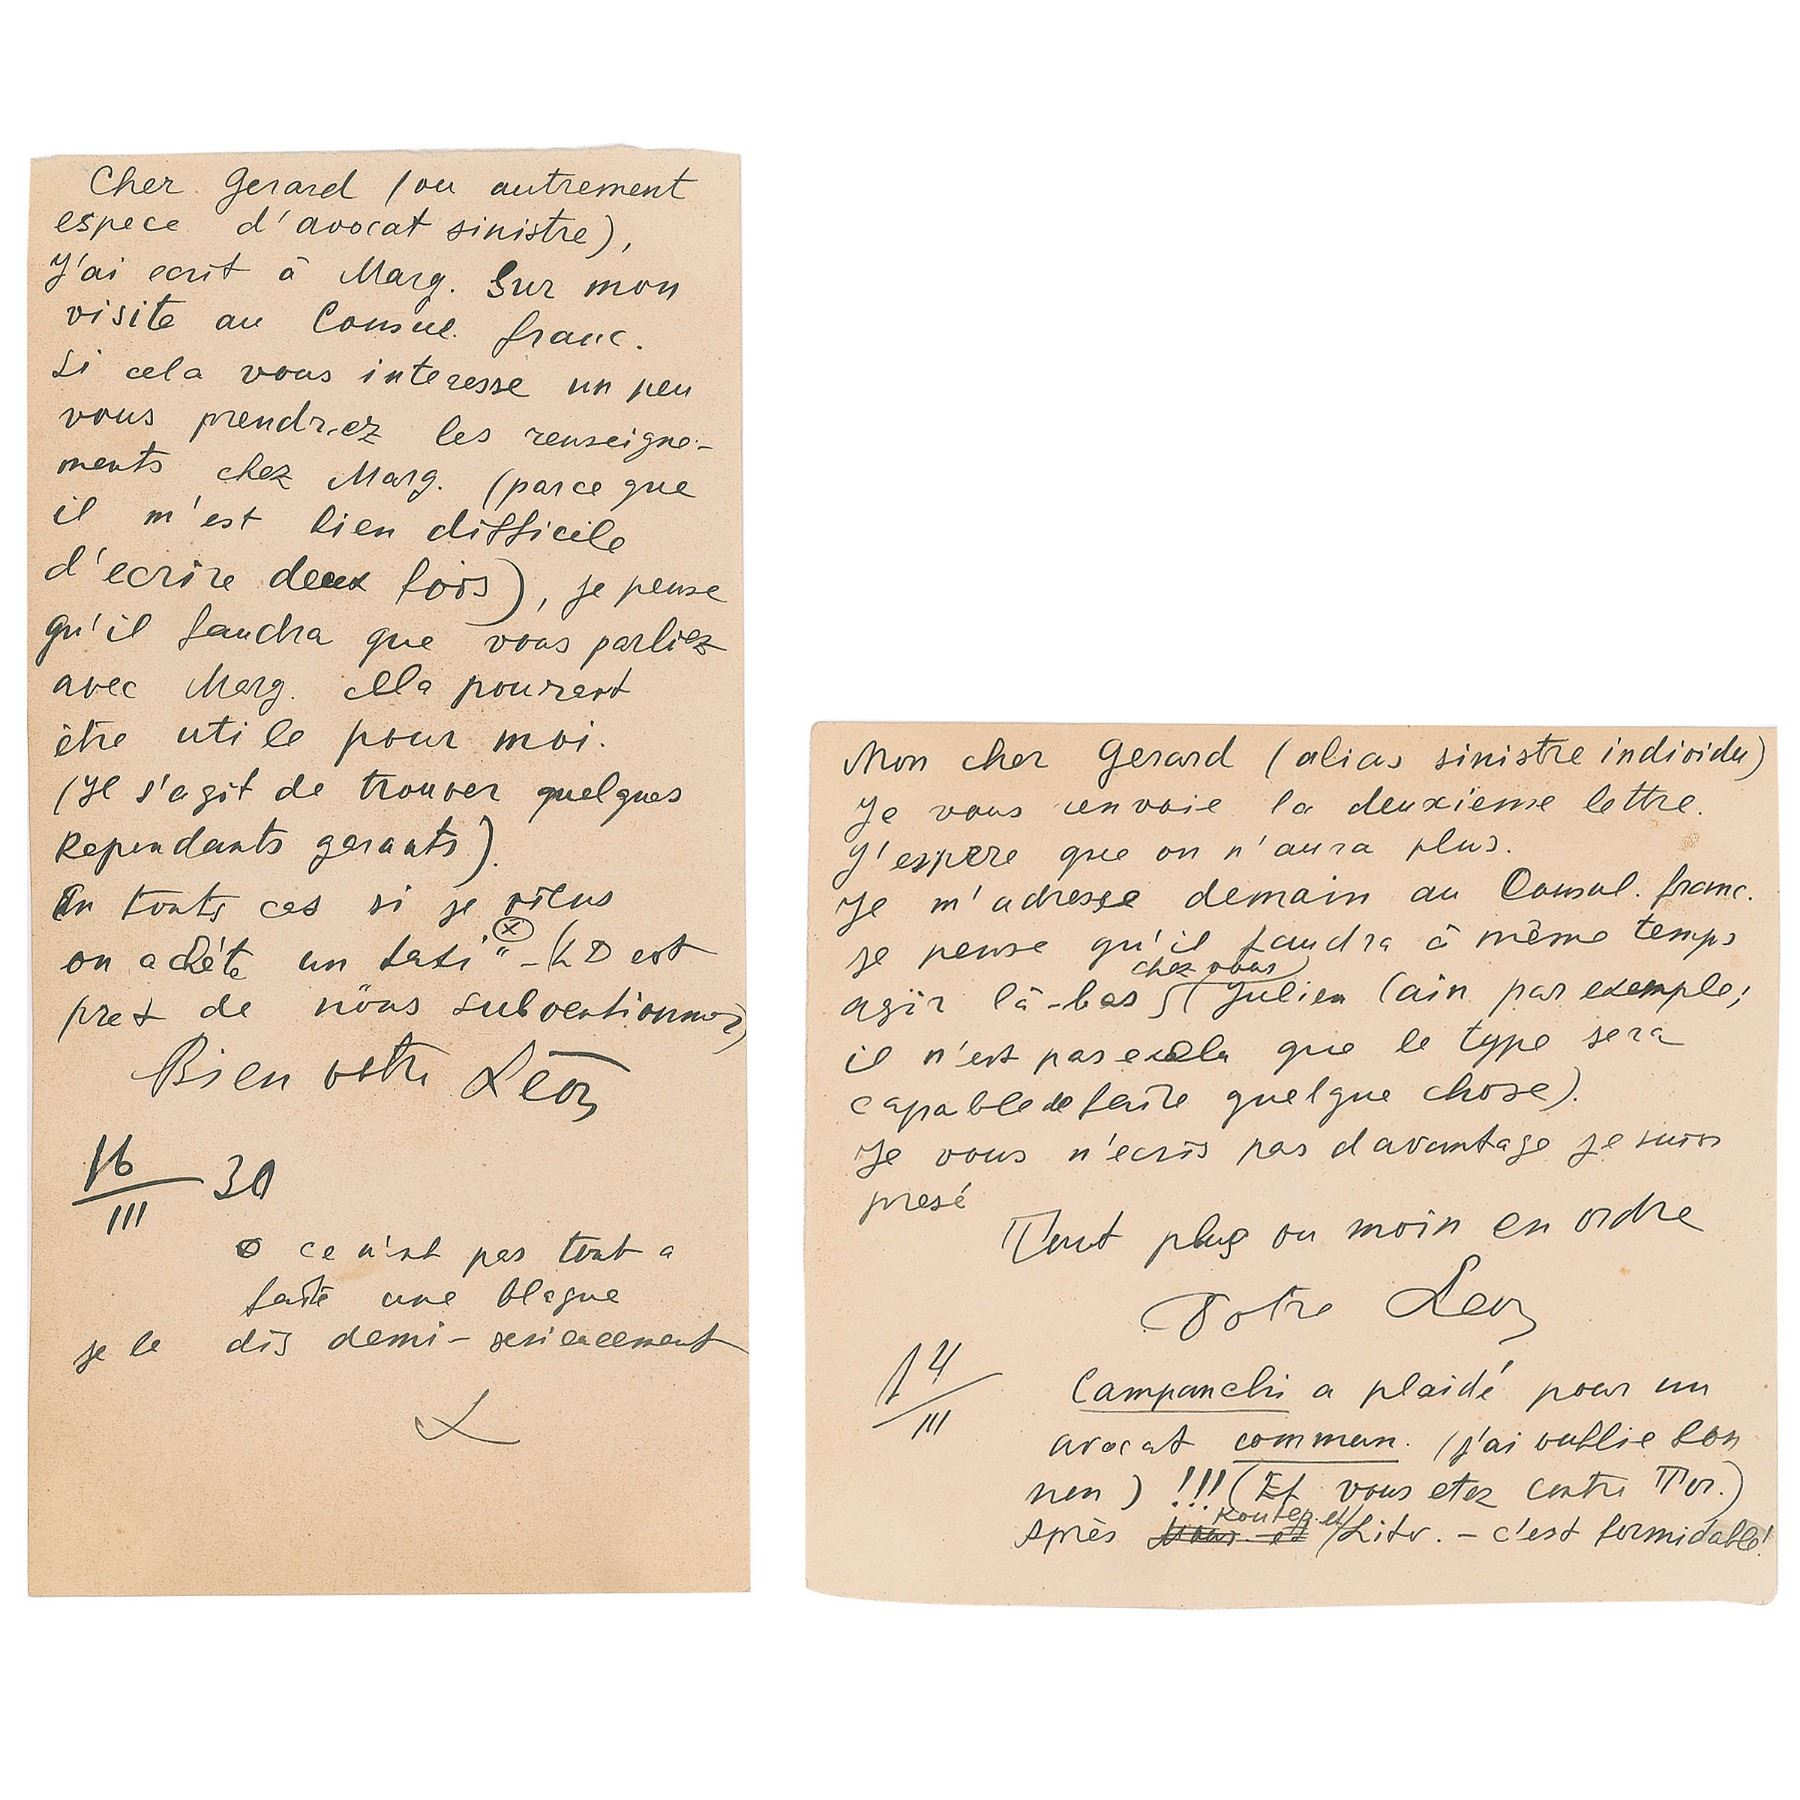 Cher Gerard (ou autrement
espece d'avocat sinistre),
J'ai ecrit à Marg. Sur mon
visite au Consul. franc.
Si cela vous interesse un peu
vous prendriez les renseigne-
ments chez Marg. (parce que
il m'est bien difficile
d'ecrire deux fois), je pense
qu'il faudra que vous parliez
avec Marg. cela pourrait
être utile pour moi.
(Il s'agit de trouver quelques
Rependants gerants).
En touts cas si je viens
on achéte un taxi" ⓧ – (LD est
pret de nous subventionner)
Bien votre Léon
16/III 30
ce n'est pas tout a
faite une blague
je le dis demi-serieusement
L
Mon cher Gerard (alias sinistre individu)
Je vous envoie la deuxieme lettre.
J'espere que on n'aura plus.
Je m'adresse demain au Consul. franc.
je pense qu'il faudra à même temps
chez vous
agir là-bas (Julien Cain par exemple;
il n'est pas exclu que le type sera
capable de faire quelque chose).
Je vous n'ecris pas davantage je suis
presé
Tout plus ou moin en ordre
Votre Leon
14/III
Campanchi a plaidé pour un
avocat commun. (j'ai oublie son
non) !!! (Et vous etez contre Tor.)
et
Après Litv. – c'est formidable!